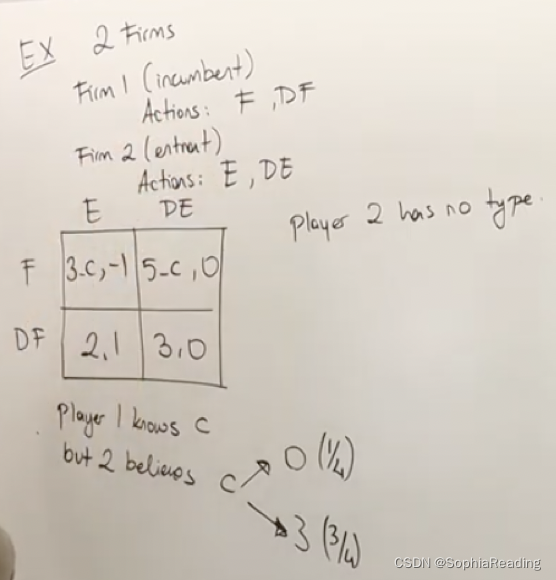 EX 2 Firms
Firm 1 (incumbent)
Actions: F, DF
Firm 2 (entrant)
Actions: E, DE
player 2 has no type.
E DE
F 3-c,-1 5-c,0
DF 2,1 3,0
player 1 knows c
but 2 believes c 0 (1/4)
3 (3/4)
CSDN @SophiaReading